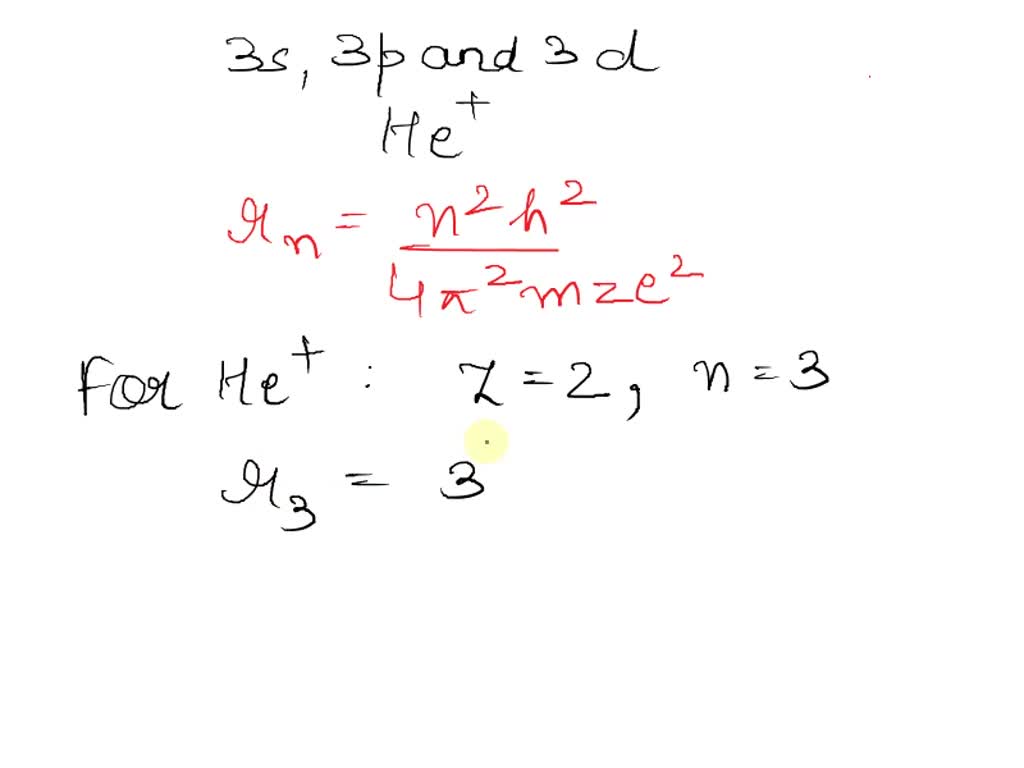 3s, 3p and 3d
He⁺
rₙ = n²h² / 4π²mze²
For He⁺ : Z = 2, n = 3
r₃ = 3